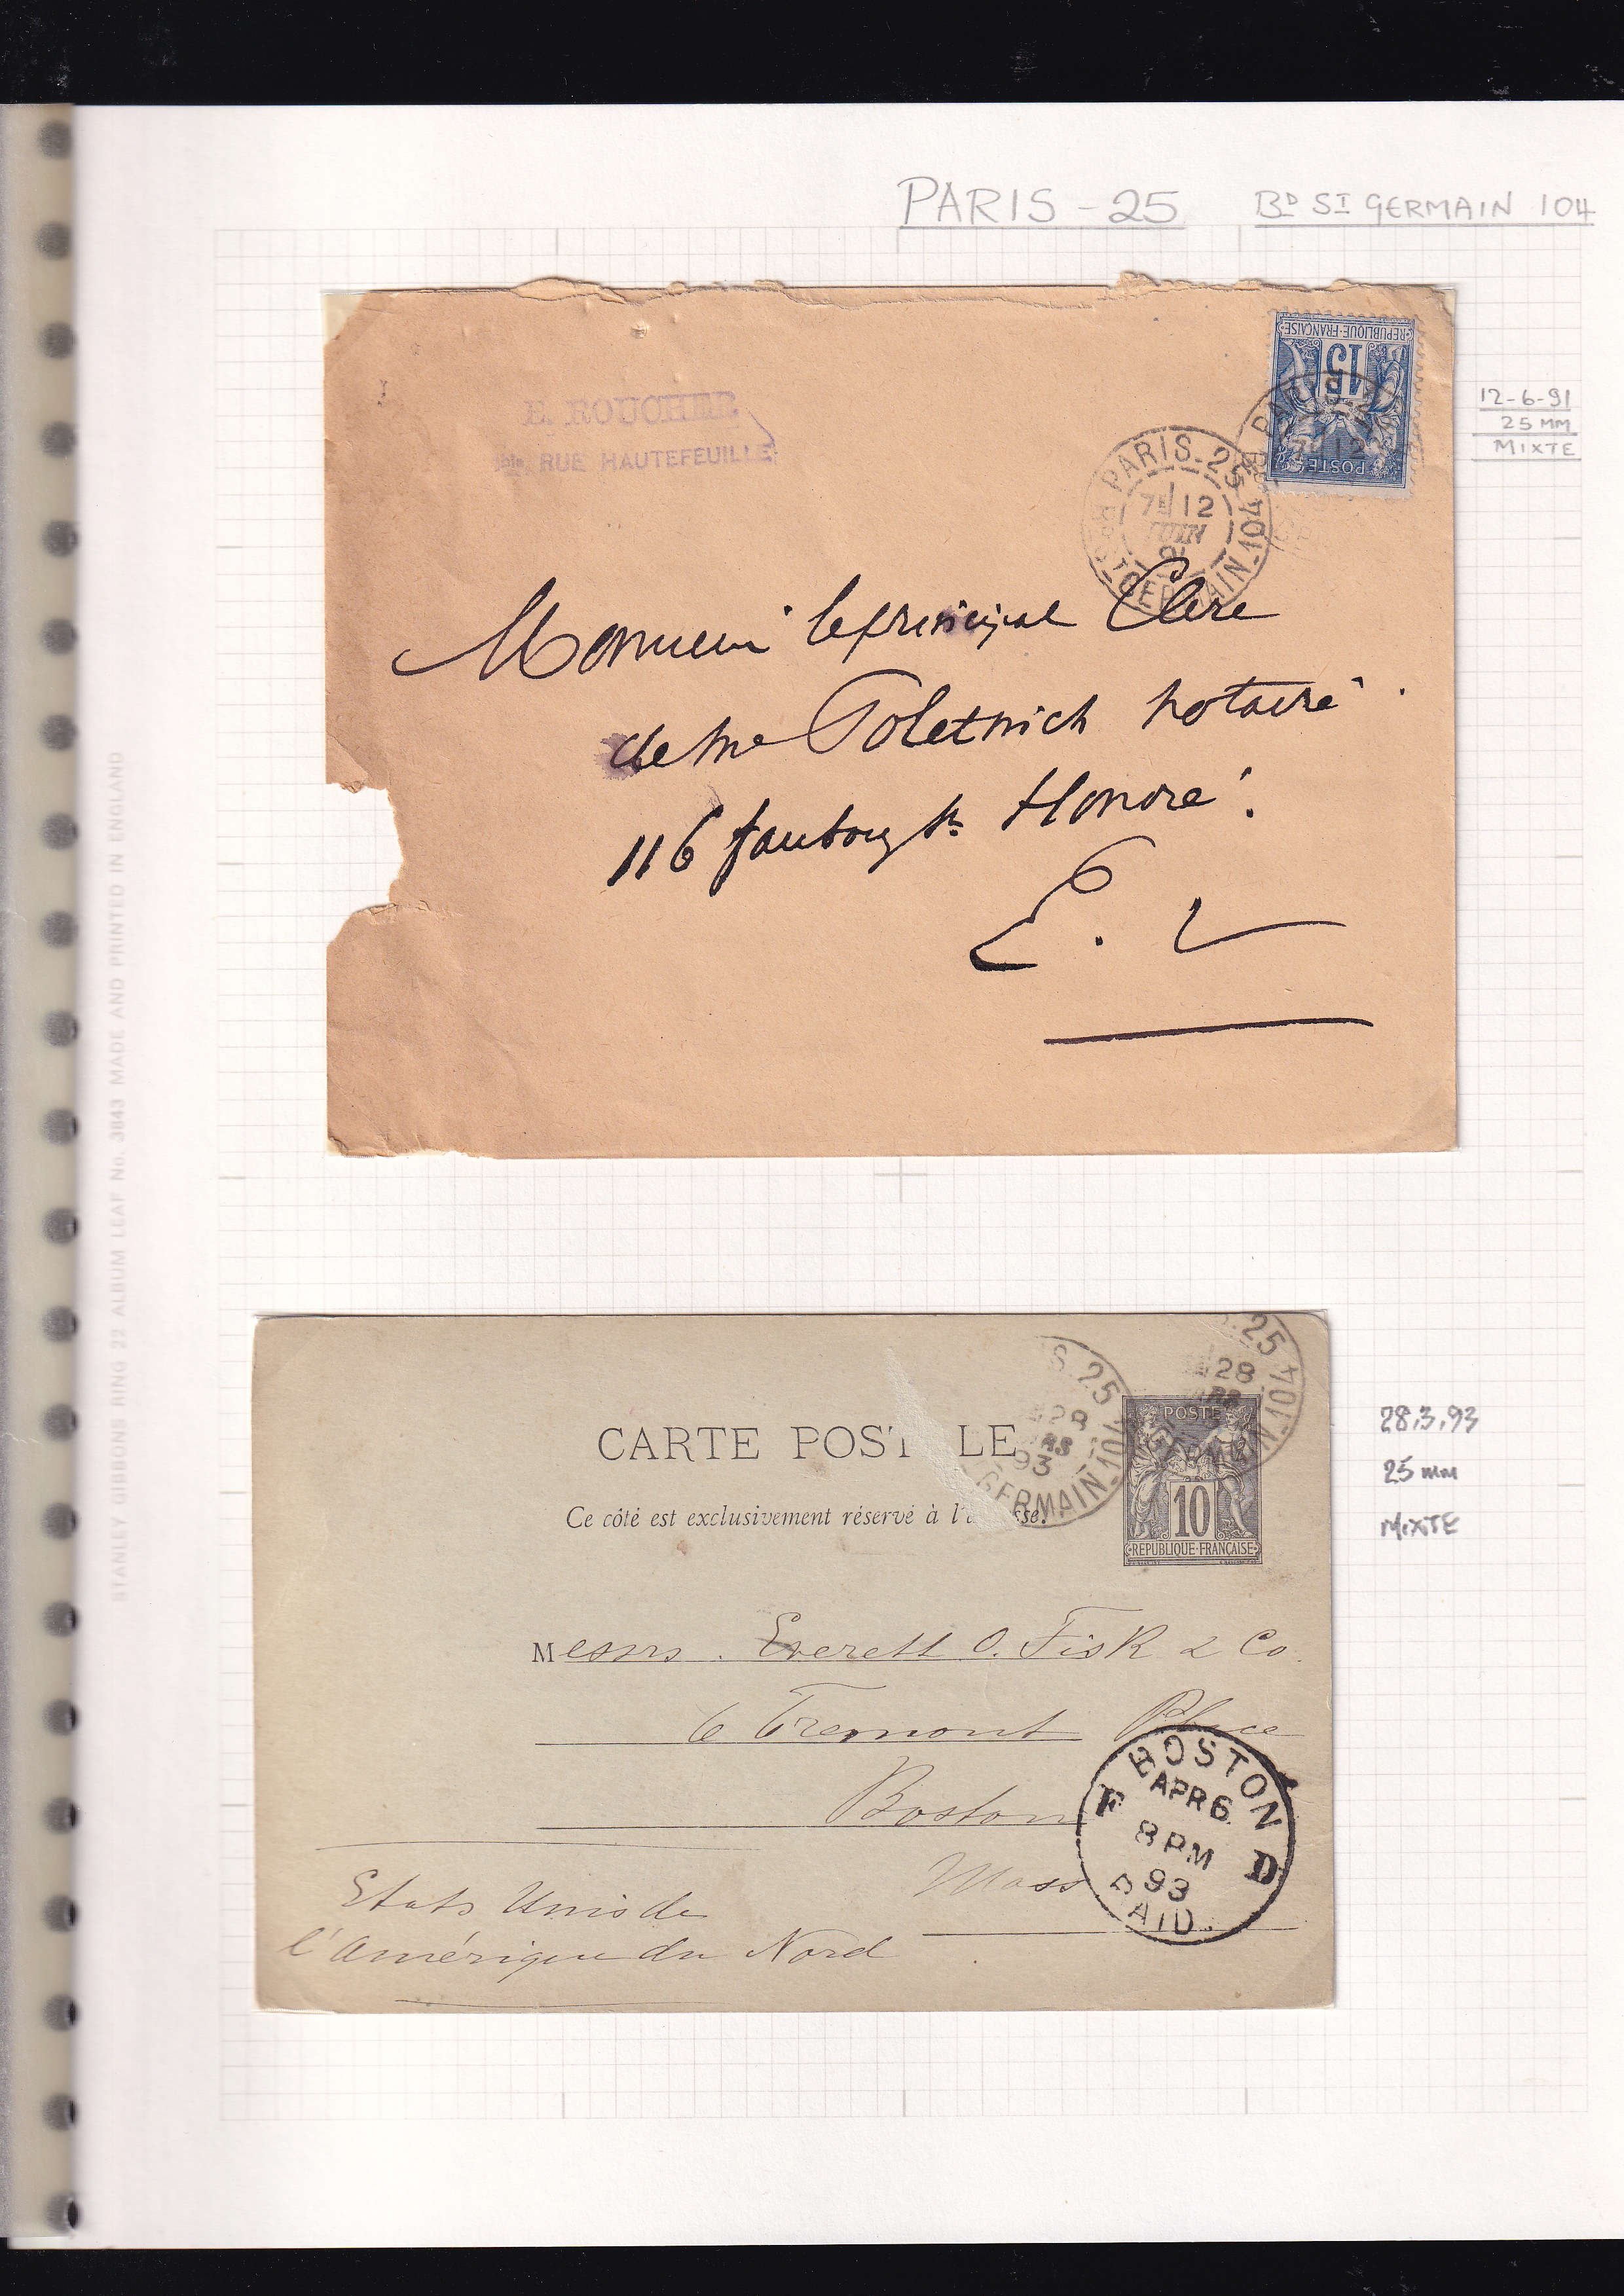 PARIS - 25 BD ST GERMAIN 104
REPUBLIQUE·FRANÇAISE
15
POSTE
12-6-91
25 MM
MIXTE
E. ROUCHER
RUE HAUTEFEUILLE
PARIS-25
7E 12
JUIN
91
BD ST GERMAIN-104
Monsieur le principal Clerc
de Me Poletnich notaire
116 faubourg St Honoré
E. V
STANLEY GIBBONS RING 22 ALBUM LEAF No. 3843 MADE AND PRINTED IN ENGLAND
CARTE POST LE
Ce côté est exclusivement réservé à l'
S-25
28
RS
93
GERMAIN-104
25
28
N-104
POSTE
10
REPUBLIQUE·FRANÇAISE
28.3.93
25 mm
MIXTE
Messrs. Everett O. Fisk & Co.
6 Tremont Place
Boston
Mass
Etats Unis de
l'Amérique du Nord
BOSTON
APR 6
8 PM
93
F D
PAID